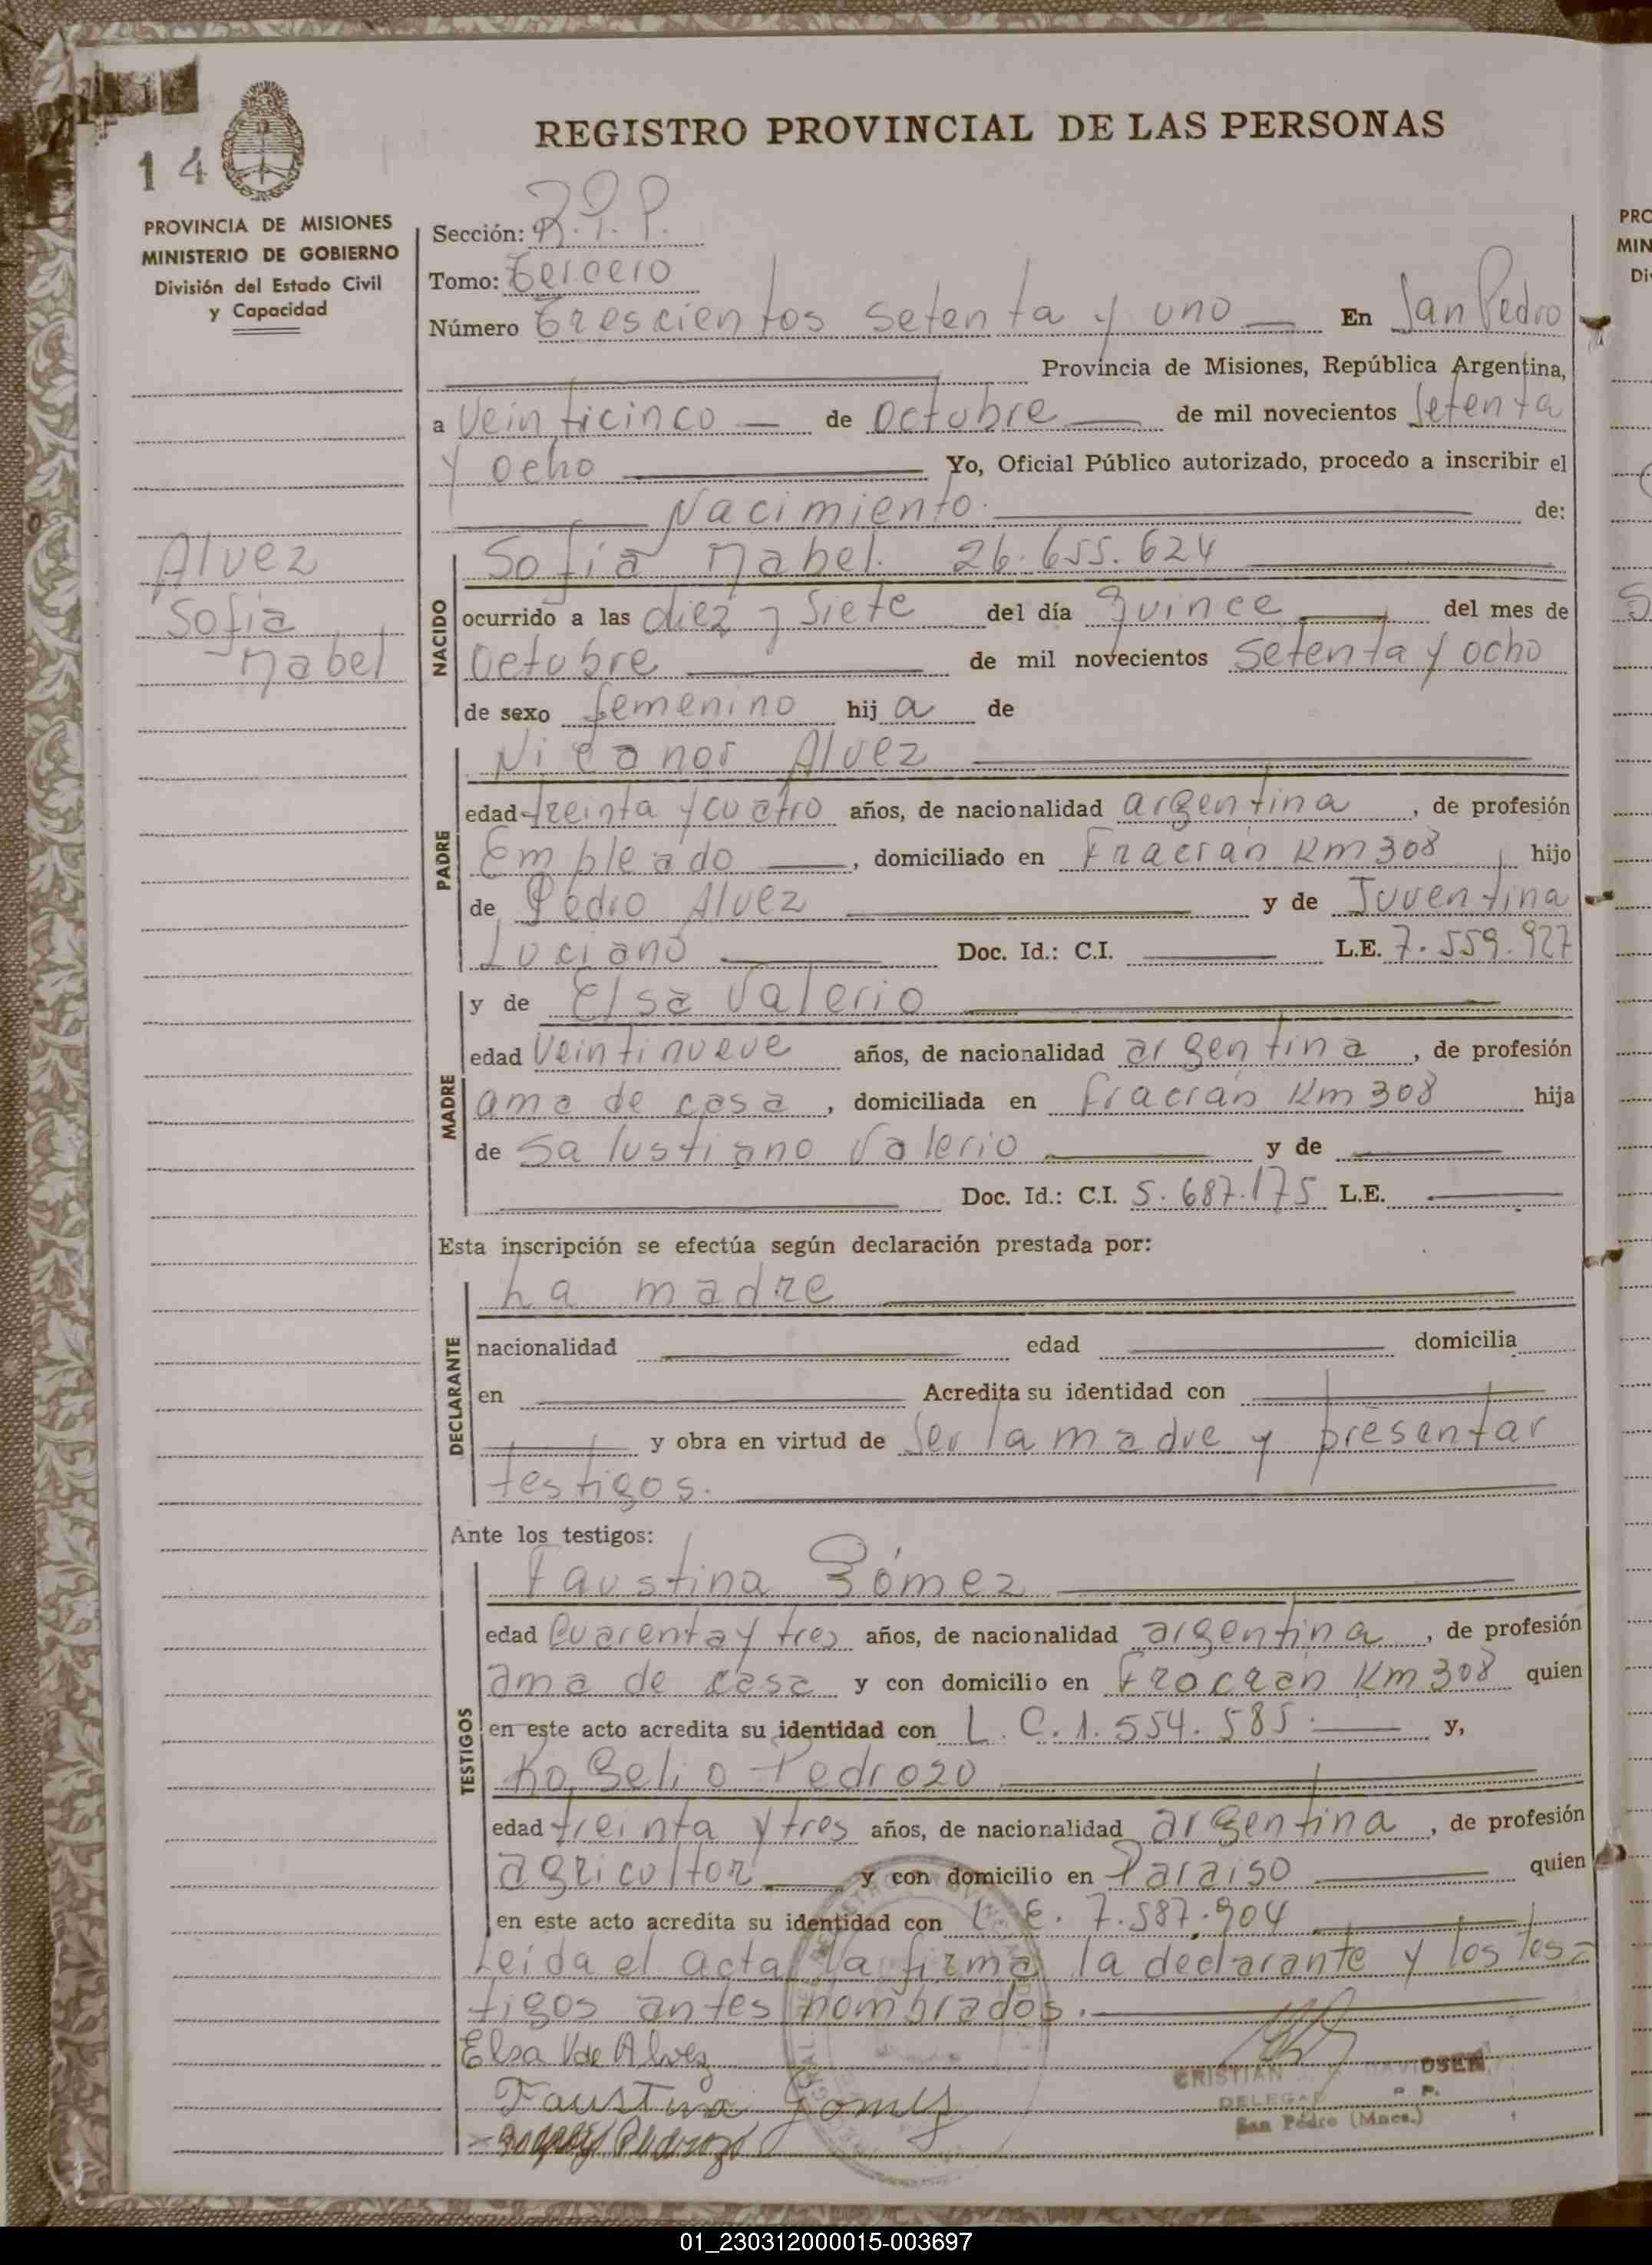 14
REGISTRO PROVINCIAL DE LAS PERSONAS
PROVINCIA DE MISIONES
MINISTERIO DE GOBIERNO
División del Estado Civil
y Capacidad
Sección: R.P.P.
Tomo: Tercero
Número Trescientos setenta y uno En San Pedro
Provincia de Misiones, República Argentina,
a Veinticinco de Octubre de mil novecientos setenta
y ocho Yo, Oficial Público autorizado, procedo a inscribir el
Nacimiento. de:
Alvez
Sofia
Mabel
NACIDO
Sofia Mabel. 26.655.624
ocurrido a las diez y siete del día quince del mes de
Octubre de mil novecientos setenta y ocho
de sexo femenino hija de
PADRE
Nicanor Alvez
edad treinta y cuatro años, de nacionalidad argentina, de profesión
Empleado, domiciliado en Fracrán Km 308 hijo
de Pedro Alvez y de Juventina
Luciano Doc. Id.: C.I. L.E. 7.559.927
MADRE
y de Elsa Valerio
edad Veintinueve años, de nacionalidad argentina, de profesión
ama de casa, domiciliada en Fracrán Km 308 hija
de Salustiano Valerio y de
Doc. Id.: C.I. 5.687.175 L.E.
Esta inscripción se efectúa según declaración prestada por:
DECLARANTE
La madre
nacionalidad edad domicilia
en Acredita su identidad con
y obra en virtud de ser la madre y presentar
testigos.
Ante los testigos:
TESTIGOS
Faustina Gómez
edad Cuarenta y tres años, de nacionalidad argentina, de profesión
ama de casa y con domicilio en Fracrán Km 308 quien
en este acto acredita su identidad con L.C. 1.554.585. y,
Rogelio Pedrozo
edad treinta y tres años, de nacionalidad argentina, de profesión
agricultor y con domicilio en Paraiso quien
en este acto acredita su identidad con L.E. 7.587.904
Leída el acta la firma la declarante y los tes=
tigos antes nombrados.
Elsa V de Alvez
Faustina Gomez
Pedrozo
CRISTIAN
San Pedro (Mnes.)
01_230312000015-003697